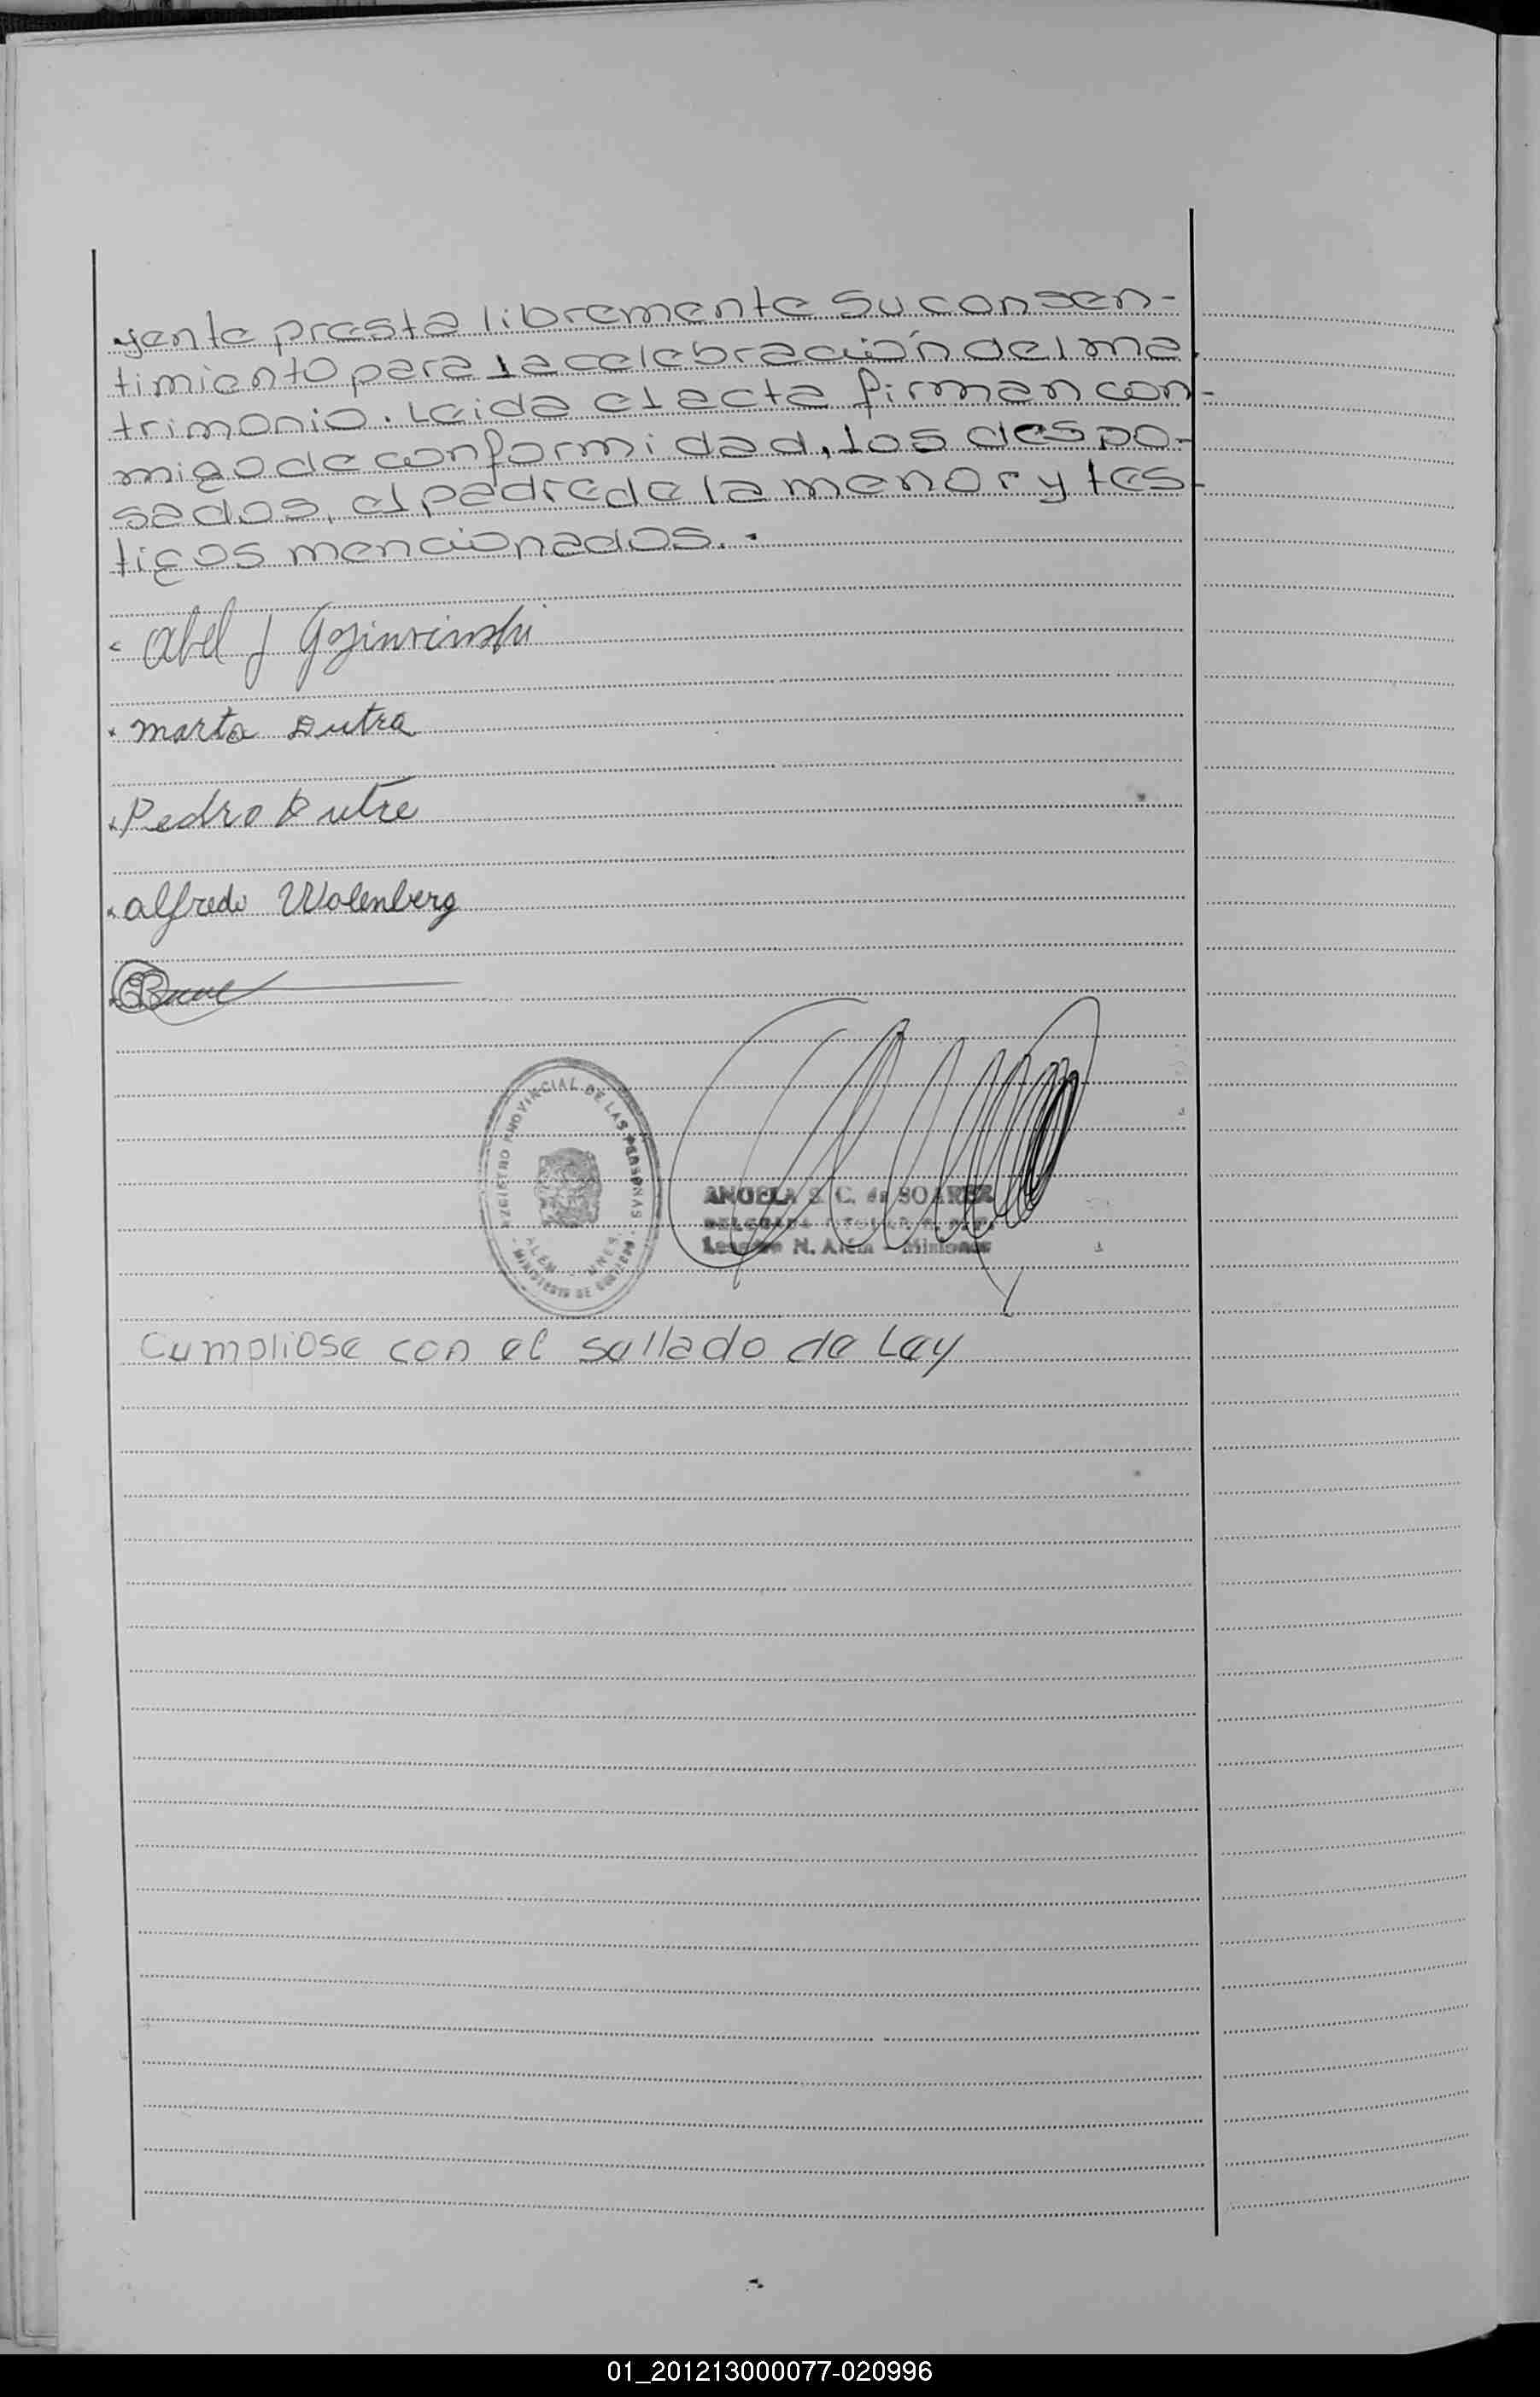 yente presta libremente su consen-
timiento para la celebración del ma
trimonio. Leida el acta firman con-
migo de conformidad, los despo-
sados, el padre de la menor y tes-
tigos mencionados. -
Abel J
Marta Dutra
Pedro Dutre
Alfredo Wolenberg
REGISTRO PROVINCIAL DE LAS PERSONAS
ALEM - MNES.
MINISTERIO DE GOBIERNO
ANGELA S. C. de SOAREZ
Leandro N. Além - Misiones
Cumpliose con el sellado de Ley
01_201213000077-020996